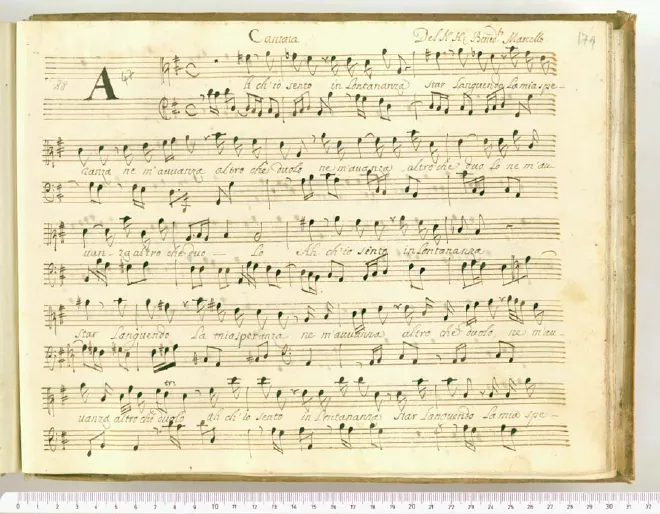 Cantata Del N. H. Bened.º Marcello 174
47
88 A
h ch'io sento in lontananza star languendo la mia spe-
ranza ne m'avvanza altro che duolo ne m'avanza altro che duo lo ne m'av-
van-za altro che duo lo Ah ch'io sento in lontananza
star languendo la mia speranza ne m'avvanza altro che duolo, ne m'av-
vanza altro che duolo ah ch'io sento in lontananza star languendo la mia spe-
0 1 2 3 4 5 6 7 8 9 10 11 12 13 14 15 16 17 18 19 20 21 22 23 24 25 26 27 28 29 30 31 32